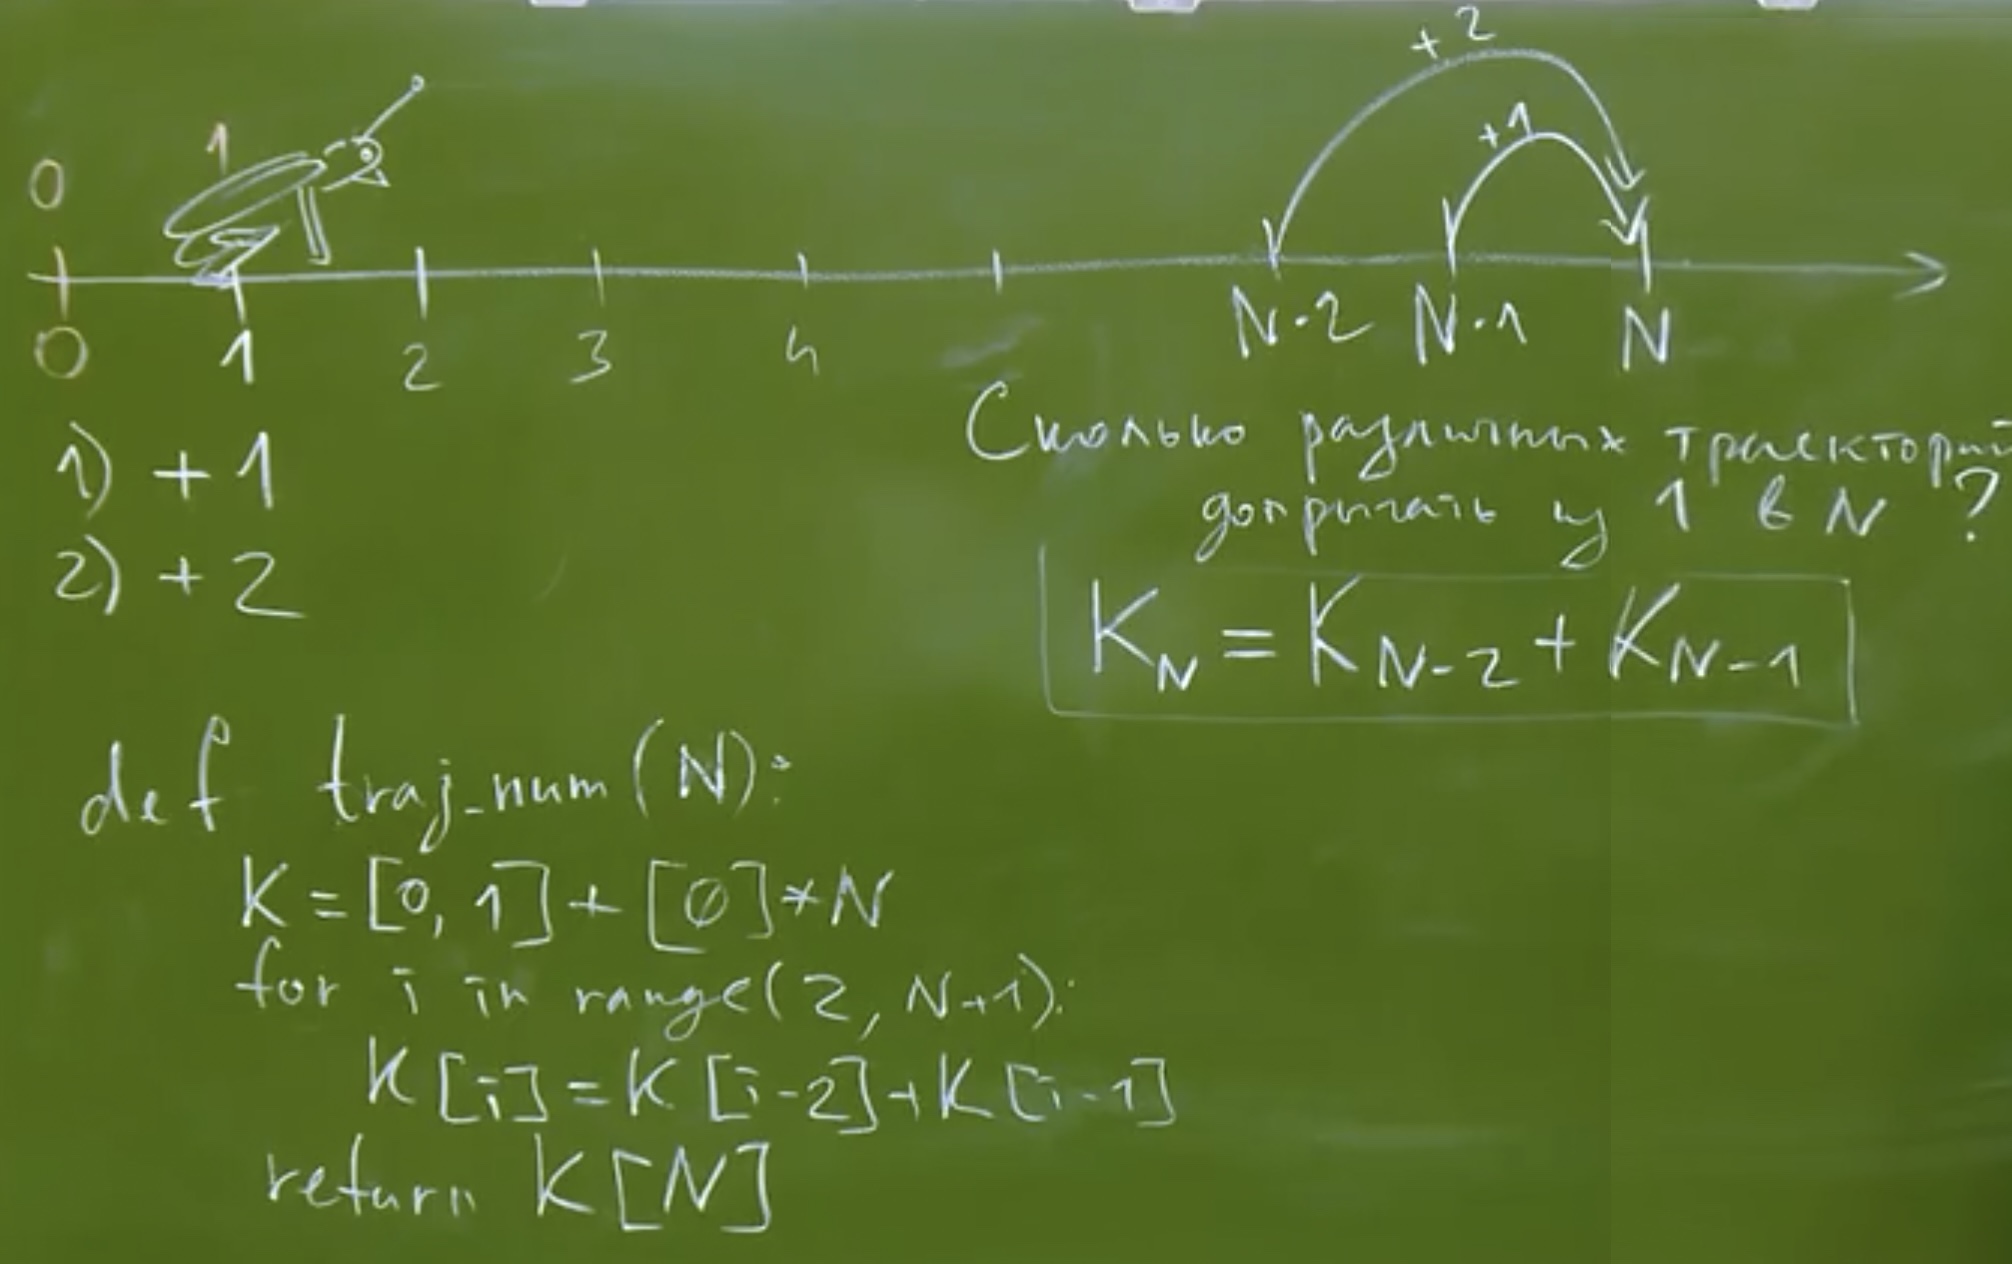 +2
+1
0 1
0 1 2 3 4 N-2 N-1 N
1) +1
2) +2
Сколько различных траекторий
допрыгать из 1 в N ?
K_N = K_{N-2} + K_{N-1}
def traj_num(N):
K = [0, 1] + [0] * N
for i in range(2, N+1):
K[i] = K[i-2] + K[i-1]
return K[N]